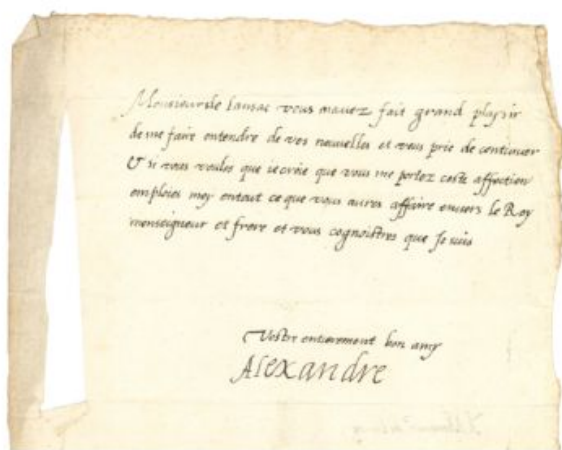 Monsieur de Lansac vous mauez fait grand playsir
de me faire entendre de vos nouuelles et vous prie de continuer
& si vous voules que ie croie que vous me portez ceste affection
emploies moy en tout ce que vous aures affaire enuers le Roy
monseigneur et frere et vous cognoistres que Je suis
Vostre entierement bon amy
Alexandre